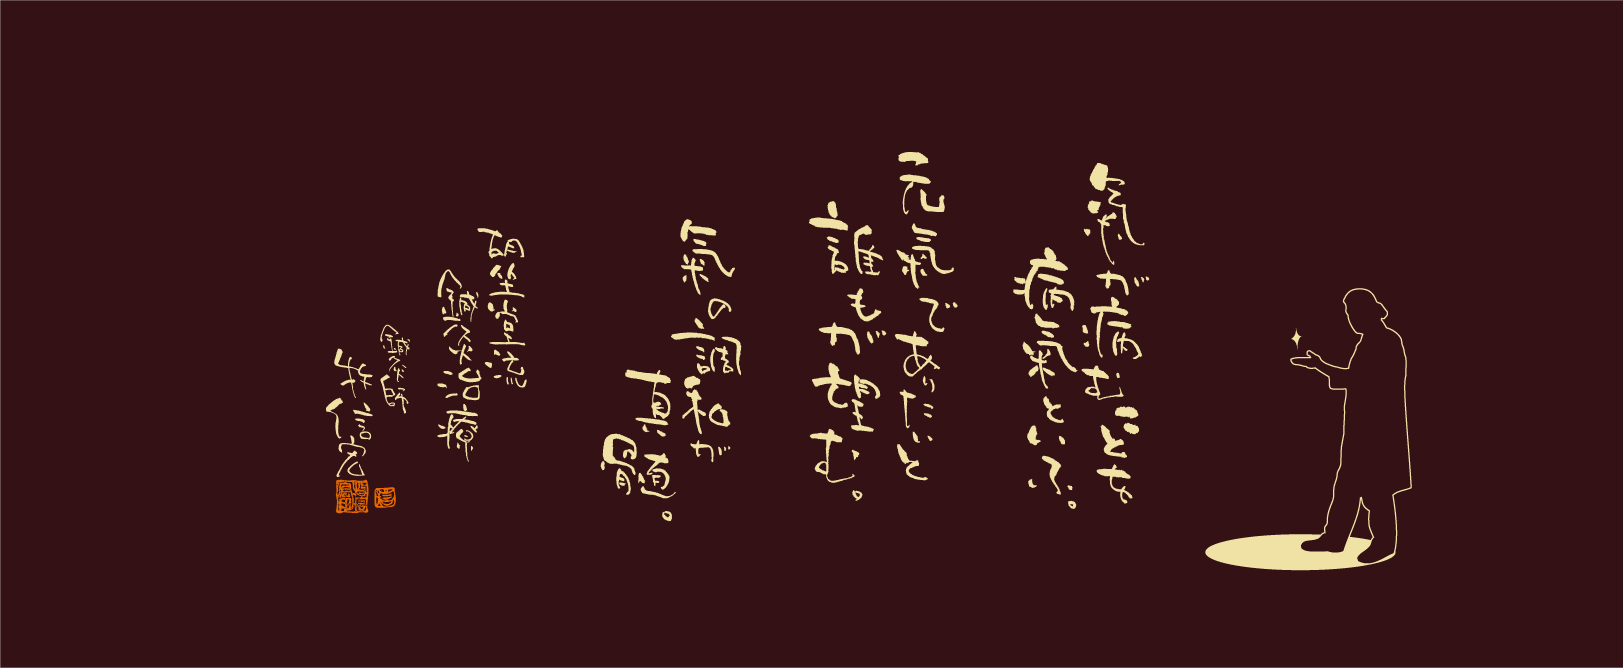 氣が病むことを
病氣といふ。
元氣でありたいと
誰もが望む。
氣の調和が
真髄。
胡坐堂流
鍼灸治療
鍼灸師